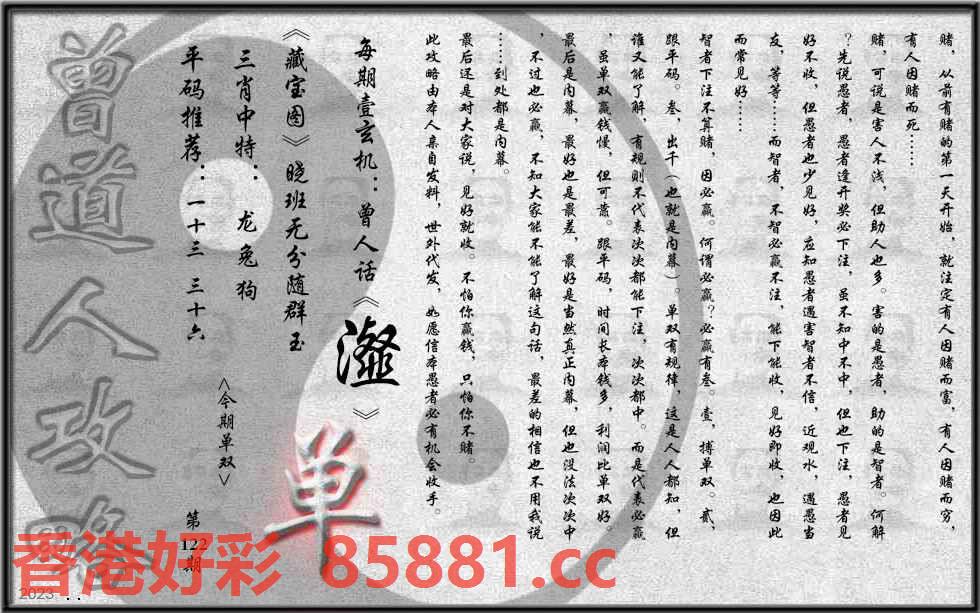 赌，从前有赌的第一天开始，就注定有人因赌而富，有人因赌而穷，
有人因赌而死……
赌，可说是害人不浅，但助人也多。害的是愚者，助的是智者。何解
？先说愚者，愚者逢开奖必下注，虽不知中不中，但也下注，愚者见
好不收，但愚者也少见好，应知愚者遇害智者不信，近观水，遇愚当
友，等等……而智者，不智必赢不注，能下能收，见好即收，也因此
而常见好……
智者下注不算赌，因必赢。何谓必赢？必赢有叁。壹，搏单双。贰，
跟平码。叁，出千（也就是内幕）。单双有规律，这是人人都知，但
谁又能了解，有规则不代表次次都能下注，次次都中。而是代表必赢
，虽单双赢钱慢，但可靠。跟平码，时间长本钱多，利润比单双好。
最后是内幕，最好也是最差，最好是当然真正内幕，但也没法次次中
，不过也必赢，不知大家能不能了解这句话，最差的相信也不用我说
……到处都是内幕。
最后还是对大家说，见好就收。不怕你赢钱，只怕你不赌。
此攻略由本人亲自发料，世外代发，如愿信本愚者必有机会收手。
每期壹玄机：曾人话《㴰》
《藏宝图》晓班无分随群玉
三肖中特：龙兔狗
平码推荐：一十三 三十六
<今期单双>
单
第
122
期
曾道人攻略
香港好彩 85881.cc
2023